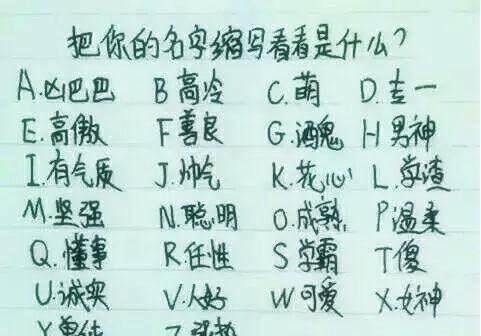 把你的名字缩写看看是什么?
A.凶巴巴 B 高冷 C.萌 D.专一
E.高傲 F 善良 G.酒鬼 H 男神
I.有气质 J.帅气 K.花心 L.学渣
M.坚强 N.聪明 O.成熟 P温柔
Q.懂事 R.任性 S 学霸 T傻
U.诚实 V.人好 W可爱 X.女神